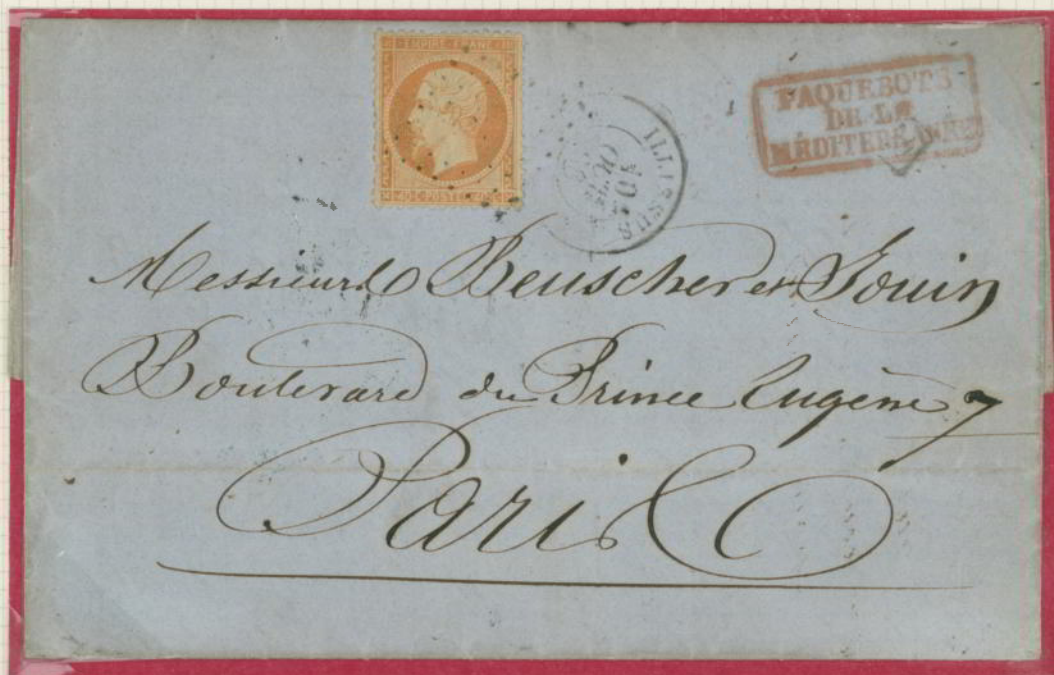 EMPIRE FRANC
40 C POSTES 40 C
ILLISSUS
10
OCT
PAQUEBOTS
DE LA
MÉDITERRANÉE
Messieurs Beuscher et Jouin
Boulevard du Prince Eugène 7
Paris